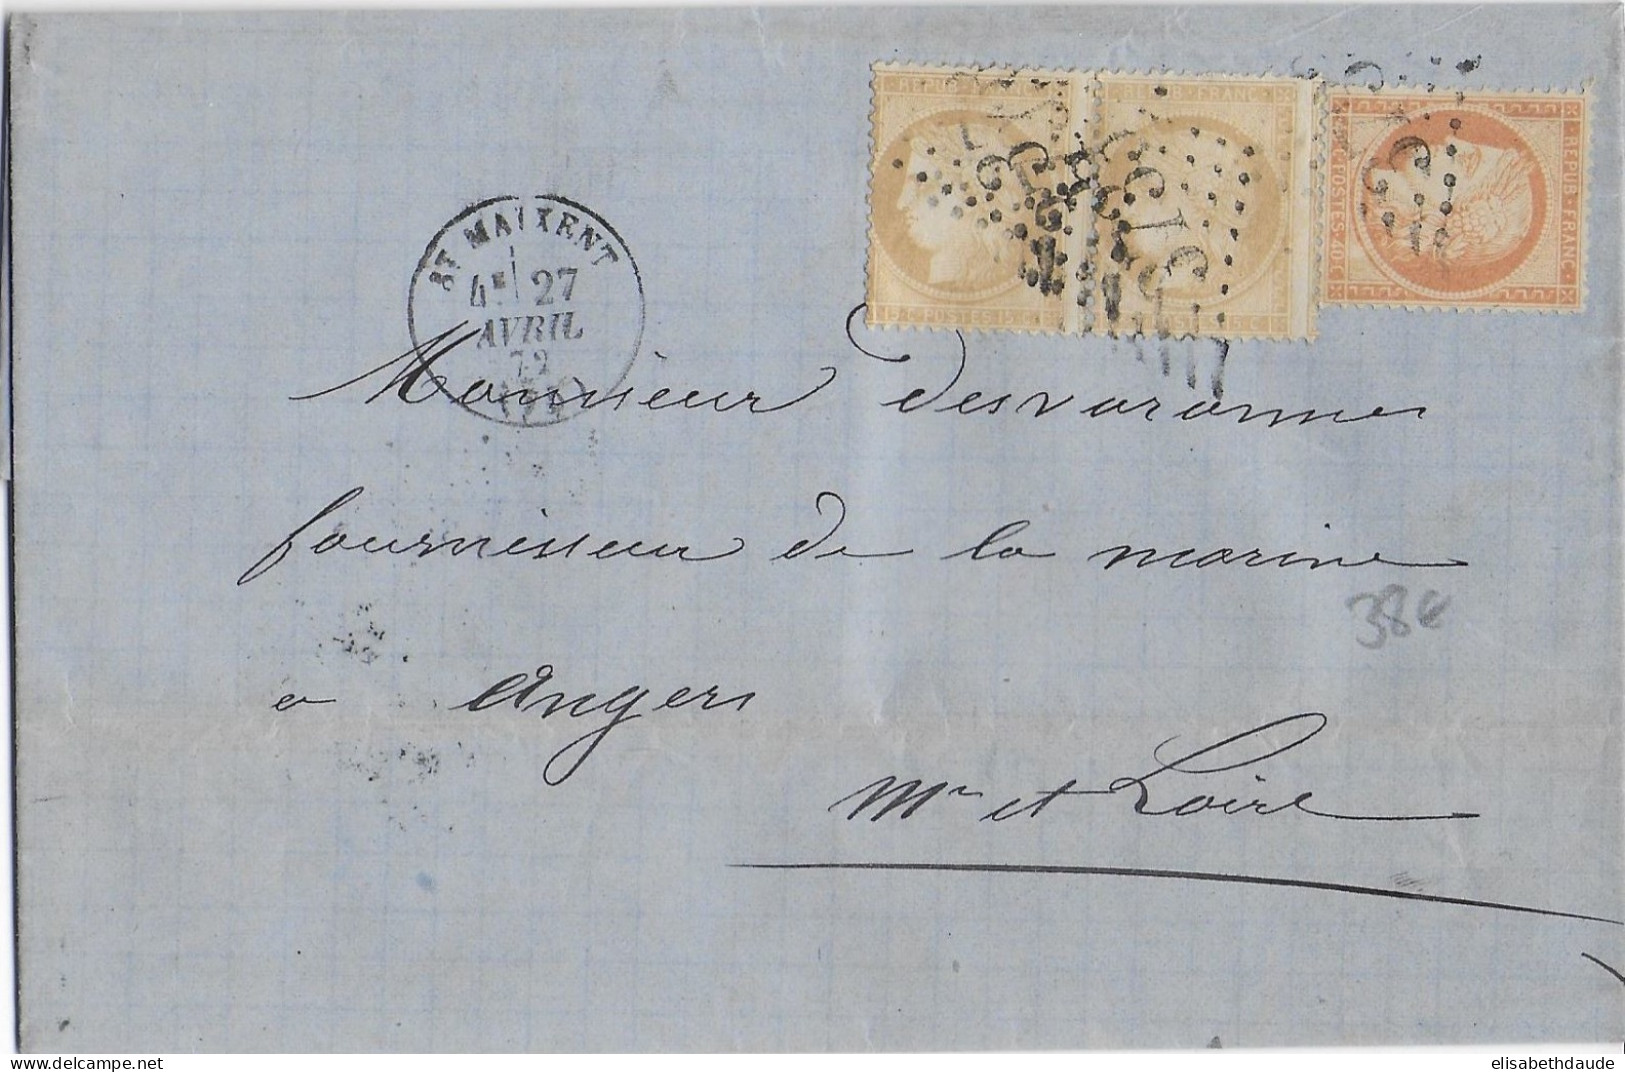 REPUB. FRANC.
REPUB. FRANC.
REPUB. FRANC.
15 C. POSTES 15 C.
15 C
POSTES 40 C
ST MAIXENT
4E 27
AVRIL
72
Monsieur Desvaronnes
fournisseur de la marine
38€
a Angers
Mne et Loire
elisabethdaude